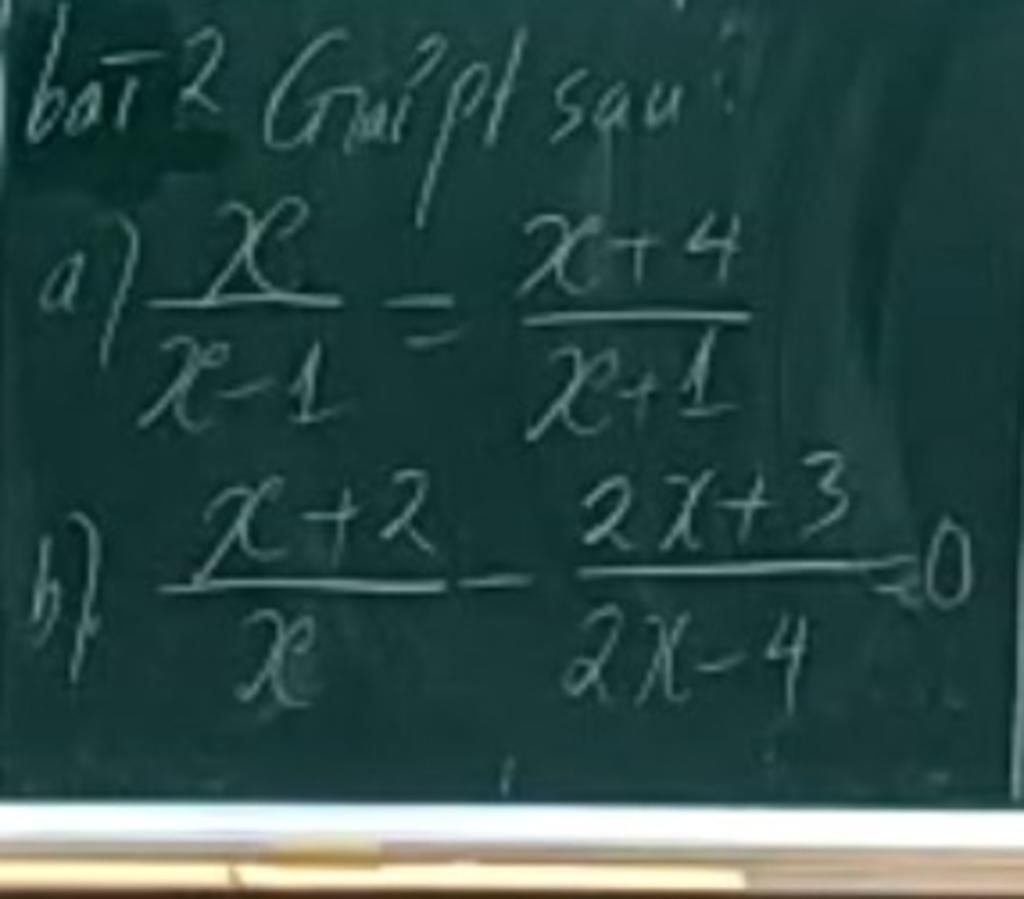 bài 2 Giải pt sau:
a) x/(x-1) = (x+4)/(x+1)
b) (x+2)/x - (2x+3)/(2x-4) = 0